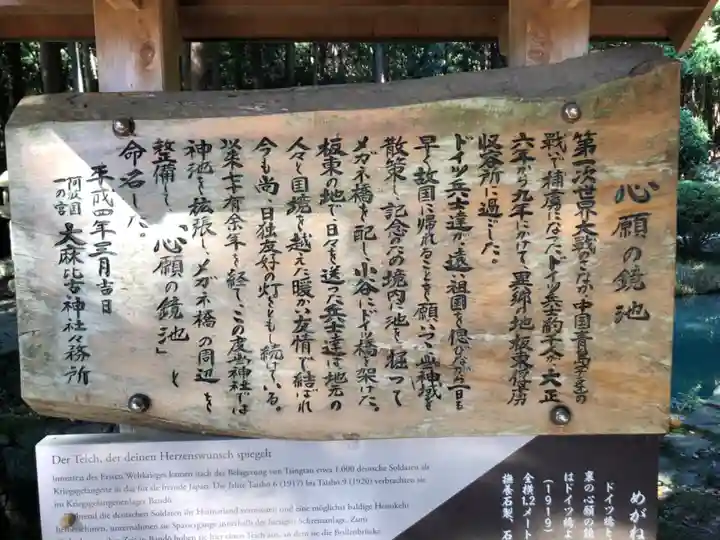 心願の鏡池
第一次世界大戦のさなか、中国青島での
戦いで捕虜になったドイツ兵士約千人が大正
六年から九年にかけて、異郷の地板東俘虜
収容所に過ごした。
ドイツ兵士達が遠い祖国を偲びながら一日も
早く故国に帰れることを願いつつ此の神域を
散策し、記念のため境内に池を掘って
メガネ橋を配し、小谷にドイツ橋を架けた。
板東の地で、日々を送った兵士達は地元の
人々と国境を越えた暖かい友情で結ばれ
今も尚、日独友好の灯をともし続けている。
以来七十有余年を経て、この度当神社では
神池を拡張し、メガネ橋の周辺を
整備し「心願の鏡池」と
命名した。
平成四年三月吉日
阿波國一の宮 大麻比古神社々務所
Der Teich, der deinen Herzenswunsch spiegelt
Inmitten des Ersten Weltkrieges kamen nach der Belagerung von Tsingtau etwa 1.000 deutsche Soldaten als
Kriegsgefangene in das für sie fremde Japan. Die Jahre Taishō 6 (1917) bis Taishō 9 (1920) verbrachten sie
im Kriegsgefangenenlager Bandō.
Während die deutschen Soldaten ihr Heimatland vermissten und eine möglichst baldige Heimkehr
herbeisehnten, unternahmen sie Spaziergänge innerhalb der hiesigen Schreinanlage. Zum
めがね
ドイツ橋と
裏の心願の鏡
はドイツ橋よ
(1919)
全横1.2メート
撫養石製、石